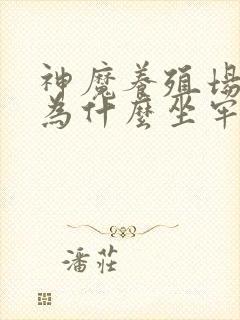 神魔養殖場
為什麼坐牢
潘莊